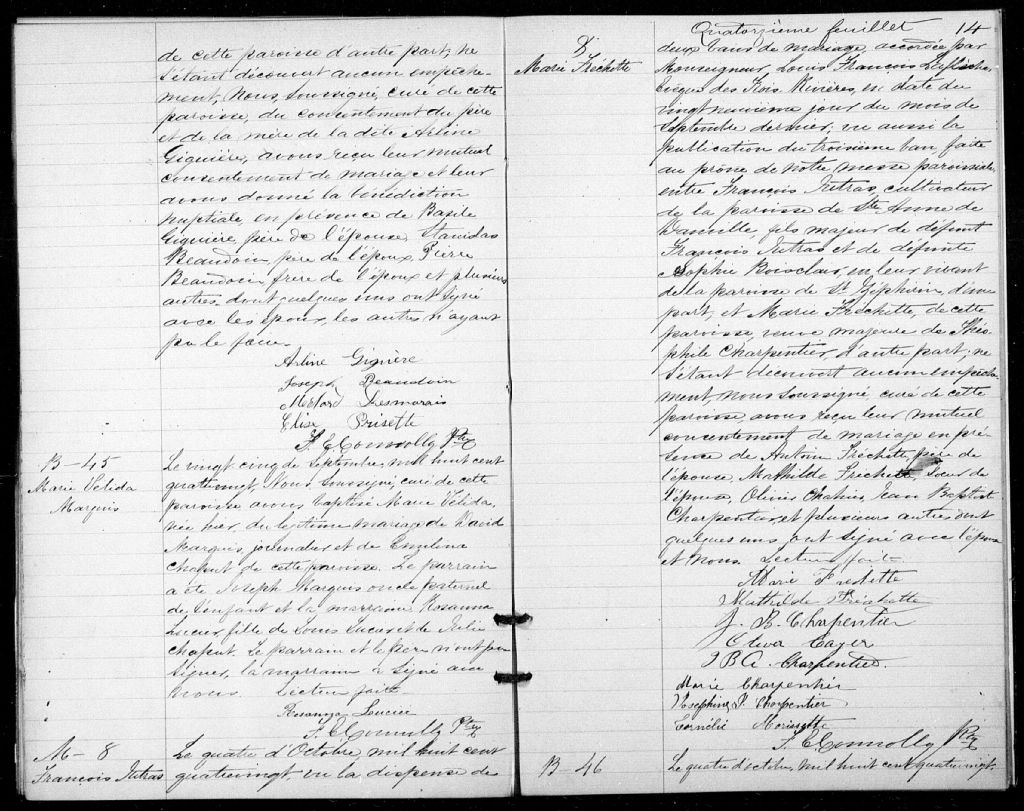 de cette paroisse d'autre part, ne
s'étant découvert aucun empêche-
ment, Nous, soussigné, curé de cette
paroisse, du consentement du père
et de la mère de la dite Arline
Giguière, avons reçu leur mutuel
consentement de mariage et leur
avons donné la bénédiction
nuptiale, en présence de Basile
Giguière, père de l'épouse, Stanislas
Beaudoin, père de l'époux, Pierre
Beaudoin frere de l'époux et plusieurs
autres dont quelques uns ont signé
avec les époux, les autres n'ayant
pu le faire.
Arline Giguière
Joseph Beaudoin
Desmarais
Elise Brisette
F. E. Connolly Ptre
B-45
Marie Velida
Marquis
Le vingt cinq de Septembre, mil huit cent
quatrevingt, Nous soussigné curé de cette
paroisse avons baptisé Marie Vélida,
née hier du légitime mariage de David
Marquis, journalier et de Emelina
Chaput de cette paroisse. Le parrain
a été Joseph Marquis oncle paternel
de l'enfant et la marraine Rosanna
Lucier, fille de Louis Lucier et de Julie
Chaput. Le parrain et le père n'ont pu
signer, la marraine a signé avec
Nous. Lecture faite
Rosanna Lucier
F. E. Connolly Ptre
M-8
François Jutras
Le quatre d'Octobre, mil huit cent
quatrevingt vu la dispense de
&
Marie Fréchette
Quatorzième feuillet 14
deux bans de mariage, accordée par
Monseigneur Louis François Laflèche
Evèque des Trois Rivières, en date du
vingt neuvième jour du mois de
Septembre dernier; vu aussi la
publication du troisième ban faite
au prône de notre messe paroissiale
entre François Jutras, cultivateur
de la paroisse de Ste Anne de
Danville, fils majeur de défunt
François Jutras et de défunte
Sophie Boisclair, en leur vivant
de la paroisse de St Zéphirin, d'une
part, et Marie Fréchette, de cette
paroisse, veuve majeure de Théo-
phile Charpentier, d'autre part; ne
s'étant découvert aucun empêche-
ment, nous soussigné curé de cette
paroisse avons reçu leur mutuel
consentement de mariage en pré-
sence de Antoine Fréchette, père de
l'épouse, Mathilde Fréchette, soeur de
l'épouse, Olivier Jean Baptiste
Charpentier et plusieurs autres dont
quelques uns ont signé avec l'épouse
et Nous. Lecture faite
Marie Frechette
Mathilde Fréchette
J. B. Charpentier
Cayer
J B A. Charpentier.
Marie Charpentier
Josephine P. Charpentier
Cornélie Morissette
F. E. Connolly Ptre
B-46
Le quatre d'octobre, mil huit cent quatrevingt,